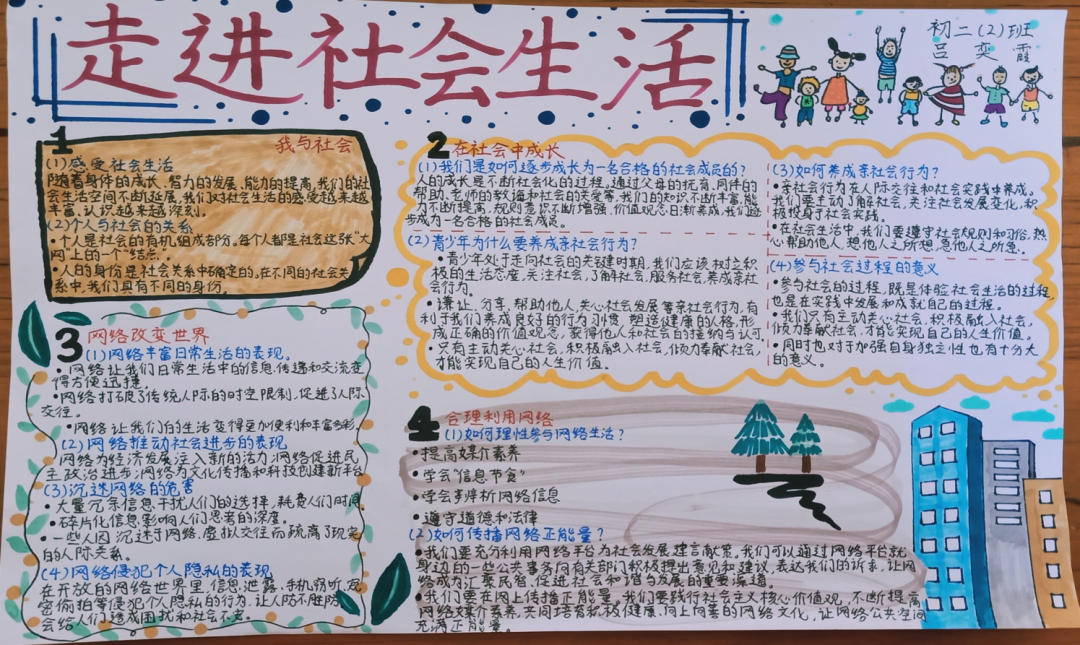 走进社会生活
初二(2)班
吕奕霞
1
我与社会
(1)感受社会生活
随着身体的成长、智力的发展、能力的提高,我们的社
会生活空间不断延展,我们对社会生活的感受越来越
丰富,认识越来越深刻。
(2)个人与社会的关系
•个人是社会的有机组成部分。每个人都是社会这张“大
网”上的一个“结点”。
•人的身份是社会关系中确定的。在不同的社会关
系中,我们具有不同的身份。
2 在社会中成长
(1)我们是如何逐步成长为一名合格的社会成员的?
人的成长是不断社会化的过程,通过父母的抚育、同伴的
帮助、老师的教诲和社会的关爱等,我们的知识不断丰富,能
力不断提高,规则意识不断增强,价值观念日渐养成,我们逐
步成为一名合格的社会成员。
(2)青少年为什么要养成亲社会行为?
•青少年处于走向社会的关键时期,我们应该树立积
极的生活态度,关注社会,了解社会,服务社会,养成亲社
会行为。
•谦让、分享、帮助他人、关心社会发展等亲社会行为,有
利于我们养成良好的行为习惯,塑造健康的人格,形
成正确的价值观念,获得他人和社会的接纳与认可。
•只有主动关心社会,积极融入社会,倾力奉献社会,
才能实现自己的人生价值。
(3)如何养成亲社会行为?
•亲社会行为在人际交往和社会实践中养成。
我们要主动了解社会,关注社会发展变化,积
极投身于社会实践。
•在社会生活中,我们要遵守社会规则和习俗,热
心帮助他人,想他人之所想,急他人之所急。
(4)参与社会过程的意义
•参与社会的过程,既是体验社会生活的过程,
也是在实践中发展和成就自己的过程。
•我们只有主动关心社会,积极融入社会,
倾力奉献社会,才能实现自己的人生价值。
•同时也对于加强自身独立性也有十分大
的意义。
3 网络改变世界
(1)网络丰富日常生活的表现。
•网络让我们日常生活中的信息传递和交流变
得方便迅捷。
•网络打破了传统人际的时空限制,促进了人际
交往。
•网络让我们的生活变得更加便利和丰富多彩。
(2)网络推动社会进步的表现
网络为经济发展注入新的活力;网络促进民
主政治进步;网络为文化传播和科技创建新平台
(3)沉迷网络的危害
•大量冗余信息干扰人们的选择,耗费人们时间。
•碎片化信息影响人们思考的深度。
•一些人因沉迷于网络、虚拟交往而疏离了现实
的人际关系。
(4)网络侵犯个人隐私的表现
在开放的网络世界里,信息泄露、手机窃听、
窥偷拍等侵犯个人隐私的行为,让人防不胜防,
会给人们造成困扰和社会不安。
4 合理利用网络
(1)如何理性参与网络生活?
•提高媒介素养
•学会“信息节食”
•学会辨析网络信息
•遵守道德和法律
(2)如何传播网络正能量?
•我们要充分利用网络平台为社会发展建言献策。我们可以通过网络平台就
身边的一些公共事务向有关部门积极提出意见和建议,表达我们的诉求,让网
络成为汇聚民智、促进社会和谐与发展的重要渠道。
•我们要在网上传播正能量。我们要践行社会主义核心价值观,不断提高
网络媒介素养,共同培育积极健康、向上向善的网络文化,让网络公共空间
充满正能量。